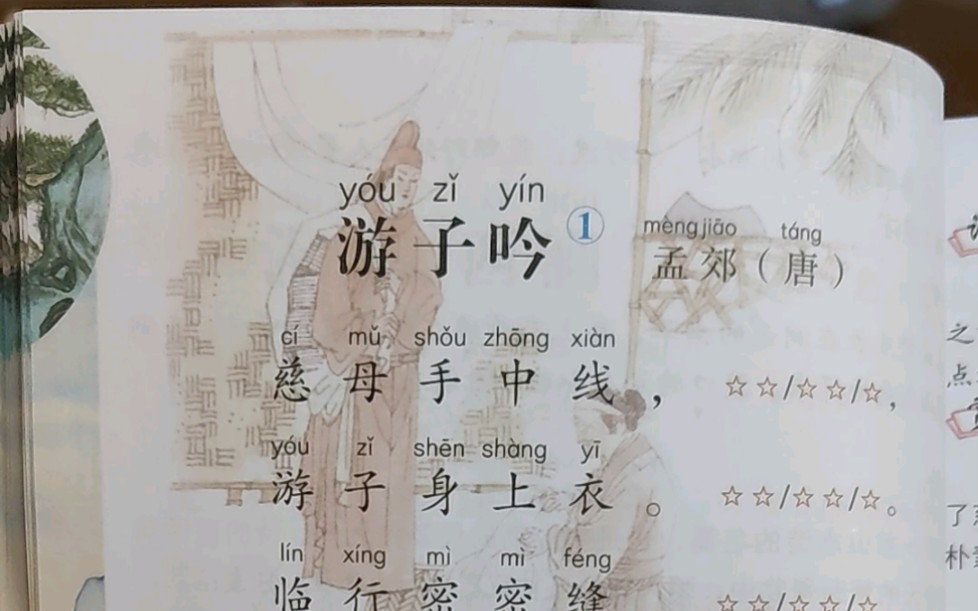 yóu zǐ yín
游子吟①
mèng jiāo táng
孟郊（唐）
cí mǔ shǒu zhōng xiàn
慈母手中线，☆☆/☆☆/☆，
yóu zǐ shēn shàng yī
游子身上衣。☆☆/☆☆/☆。
lín xíng mì mì féng
临行密密缝 ☆☆/☆☆/☆
之
点
了
朴